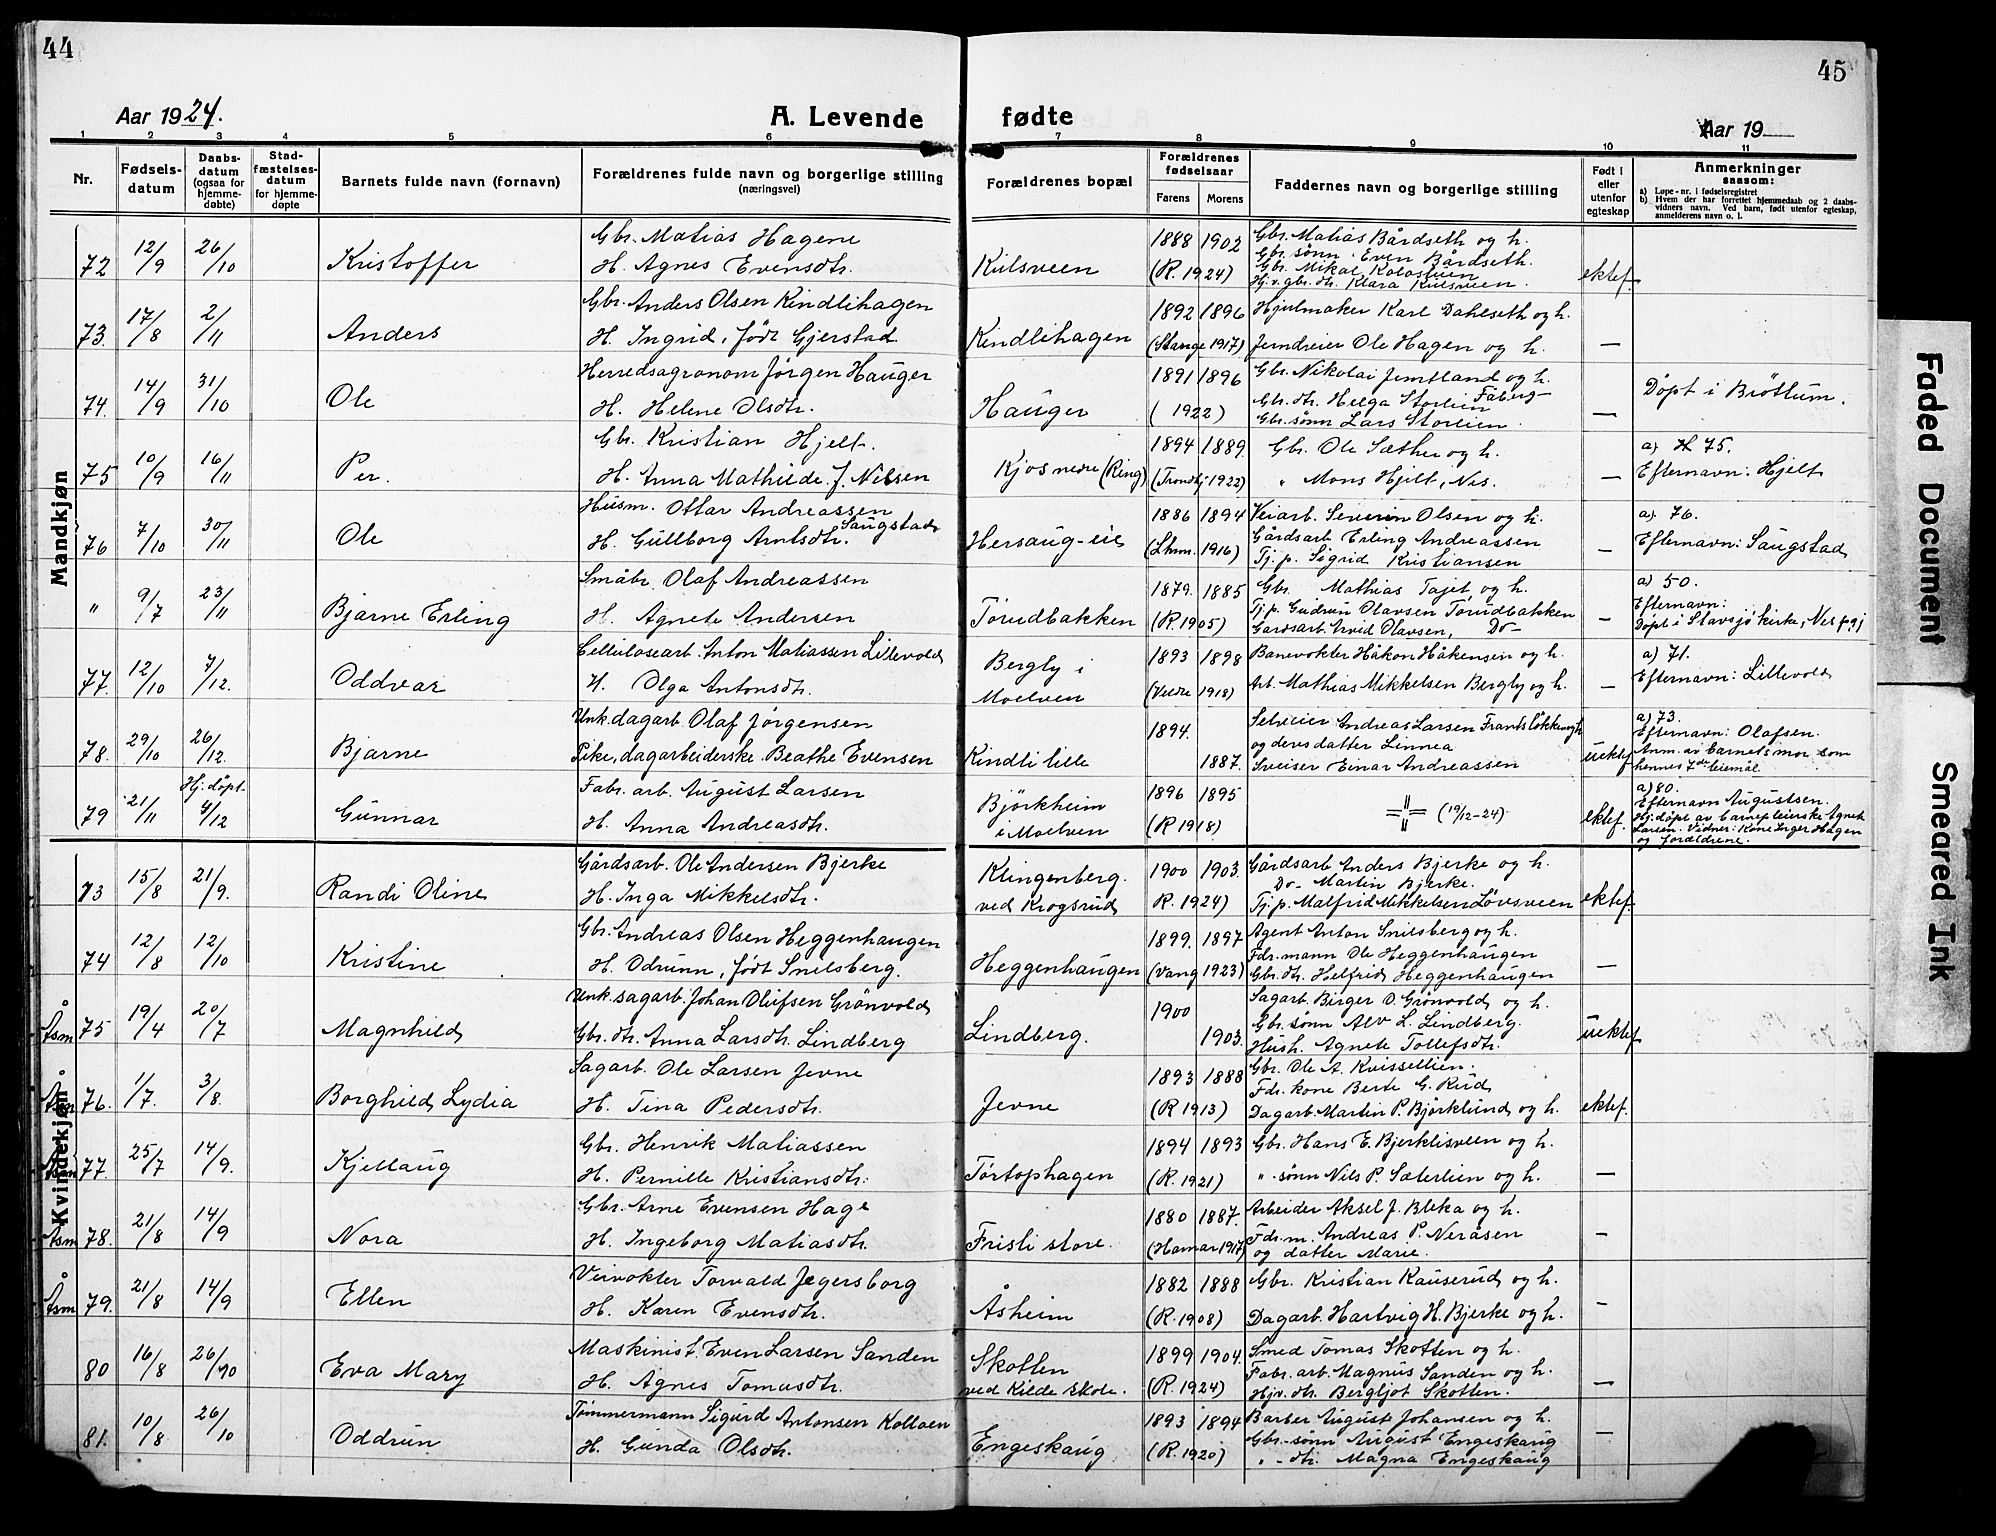 44
45
Aar 1924.
A. Levende
fødte
Aar 19
1 2 3 4 5 6 7 8 9 10 11
Nr.
Fødsels-
datum
Daabs-
datum
(ogsaa for
hjemme-
døbte)
Stad-
fæstelses-
datum
for hjemme-
døpte
Barnets fulde navn (fornavn)
Forældrenes fulde navn og borgerlige stilling
(næringsvei)
Forældrenes bopæl
Forældrenes
fødselsaar
Farens Morens
Faddernes navn og borgerlige stilling
Født i
eller
utenfor
egteskap
Anmerkninger
saasom:
a) Løpe-nr. i fødselsregistret
b) Hvem der har forrettet hjemmedaab og 2 daabs-
vidners navn. Ved barn, født utenfor egteskap,
anmelderens navn o. l.
Mandkjøn
72 12/9 26/10 Kristoffer
Gbr. Matias Hagene
H. Agnes Evensdtr.
Kulsveen
1888 1902
(R. 1924)
Gbr. Matias Bårdseth og h.
Gbr. sønn Even Bårdseth.
Gbr. Mikal Kolostuen
Hjv. gbr. dtr. Klara Kulsveen.
ektef.
73. 17/8 2/11 Anders
Gbr. Anders Olsen Kindlihagen
H. Ingrid, født Gjerstad
Kindlihagen
1892 1896
(Stange 1917)
Hjulmaker Karl Dahlseth og h.
Jerndreier Ole Hagen og h.
—
74. 14/9 31/10 Ole
Herredsagronom Jørgen Hauger
H. Helene Olsdtr.
Hauger
1891 1896
( 1922)
Gbr. Nikolai Jemtland og h.
Gbr. dtr. Helga Storlien Fåberg
Gbr. sønn Lars Storlien.
—
Døpt i Brøttum.
75 10/9 16/11 Per.
Gbr. Kristian Hjelt.
H. Anna Mathilde f. Nilsen
Kjos nedre (Ring)
1894 1889.
(Trondhj 1922)
Gbr. Ole Sæther og h.
" Mons Hjelt, Nes.
—
a) 75.
Efternavn: Hjelt
76 7/10 30/11 Ole
Husm. Ottar Andreassen
Saugstad
H. Gullborg Arntsdtr.
Hersaug-eie
1886 1894
(Lhm. 1916)
Veiarb. Severin Olsen og h.
Gårdsarb Erling Andreassen
Tj. p. Sigrid Kristiansen
—
a). 76.
Efternavn: Saugstad
" 9/7 23/11 Bjarne Erling
Småbr. Olaf Andreassen
H. Agnete Andersen
Torudbakken
1879. 1885
(R. 1905)
Gbr. Mathias Tajet, og h.
Tj. p. Gudrun Olavsen Torudbakken
Gårdsarb. Arvid Olavsen, Do—
—
a) 50.
Efternavn:
Døpt i Stavsjø kirke, Nes pgj
77. 12/10 7/12. Oddvar
Cellulosearb. Anton Matiassen Lillevold
H. Olga Antonsdtr.
Bergly i
Moelven
1893 1898
(Veldre 1918)
Banevokter Håkon Håkensen og h.
Arb. Mathias Mikkelsen Bergly og h.
—
a) 71.
Efternavn: Lillevold
78. 29/10 26/12. Bjarne
Unk. dagarb. Olaf Jørgensen
Pike, dagarbeiderske Beathe Evensen
Kindli lille
1894.
1887.
Selveier Andreas Larsen Frandsløkken og h
og deres datter Linnea
Sveiser Einar Andreassen
uektef
a) 73.
Efternavn: Olafsen.
Anm. av barnets mor som
hennes 7de leiemål.
79 21/11 Hj. døpt 4/12 Gunnar
Fabr. arb. August Larsen
H. Anna Andreasdtr.
Bjørkheim
i Moelven
1896 1895
(R 1918)
(19/12-24)
ektef.
a) 80.
Efternavn Augustsen.
Hj. døpt av barnepleierske Agnete
Larsen. Vidner: Kone Inger Hagen
og forældrene.
Kvindekjøn
73 15/8 21/9. Randi Oline
Gårdsarb. Ole Andersen Bjerke
H. Inga Mikkelsdtr.
Klingenberg.
ved Krogsrud
1900 1903.
R. 1924)
Gårdsarb Anders Bjerke og h.
Do— Martin Bjerke.
Tj. p. Malfrid Mikkelsen Løvsveen
ektef.
74 12/8 12/10 Kristine
Gbr. Andreas Olsen Heggenhaugen
H. Odrunn, født Snilsberg.
Heggenhaugen
1899. 1897
(Vang 1923)
Agent Anton Snilsberg og h.
Fdr. mann Ole Heggenhaugen
Gbr. dtr. Helfrid Heggenhaugen
—
Åsm 75 19/4 20/7 Magnhild
Unk. sagarb. Johan Olufsen Grønvold
Gbr. dtr. Anna Larsdtr. Lindberg
Lindberg.
1900
1903.
Sagarb. Birger O. Grønvold og h.
Gbr. sønn Alv L. Lindberg.
Hush. Agnete Tollefsdtr.
uektef
Åsm 76. 1/7. 3/8. Borghild Lydia
Sagarb. Ole Larsen Jevne
H. Tina Pedersdtr.
Jevne
1893 1888
(R 1913)
Gbr. Ole A. Kvissellien.
Fdr. kone Berte G. Rud
Dagarb. Martin P. Bjørklund og h.
ektef.
Åsm 77. 25/7 14/9. Kjellaug
Gbr. Henrik Matiassen
H. Pernille Kristiansdtr.
Tørtophagen
1894 1893
(R. 1921)
Gbr. Hans E. Bjerklisveen og h.
" sønn Nils P. Sæterlien og h.
—
Åsm 78. 21/8 14/9 Nora
Gbr. Arne Evensen Hage
H. Ingeborg Matiasdtr.
Frisli store.
1880 1887.
(Hamar 1917)
Arbeider Aksel J. Bleka og h.
Fdr. m. Andreas P. Neråsen
og datter Marie.
—
Åsm 79. 21/8 14/9 Ellen
Veivokter Torvald Jegersborg
H. Karen Evensdtr.
Åsheim
1882 1888
(R. 1908)
Gbr. Kristian Kauserud og h.
Dagarb. Hartvig H. Bjerke og h.
—
80 16/8 26/10 Eva Mary
Maskinist. Even Larsen Sanden
H. Agnes Tomasdtr.
Skotten
ved Kilde skole.
1899 1904.
(R. 1924)
Smed Tomas Skotten og h.
Fabr. arb. Magnus Sanden og h.
Hjv. dtr. Bergljot Skotten.
—
81. 10/8 26/10 Oddrun
Tømmermann Sigurd Antonsen Koloen
H. Gunda Olsdtr.
Engeskaug
1893 1894
(R. 1920)
Barber August Johansen og h.
Gbr. sønn August Engeskaug
" dtr. Magna Engeskaug
—
Faded Document
Smeared Ink